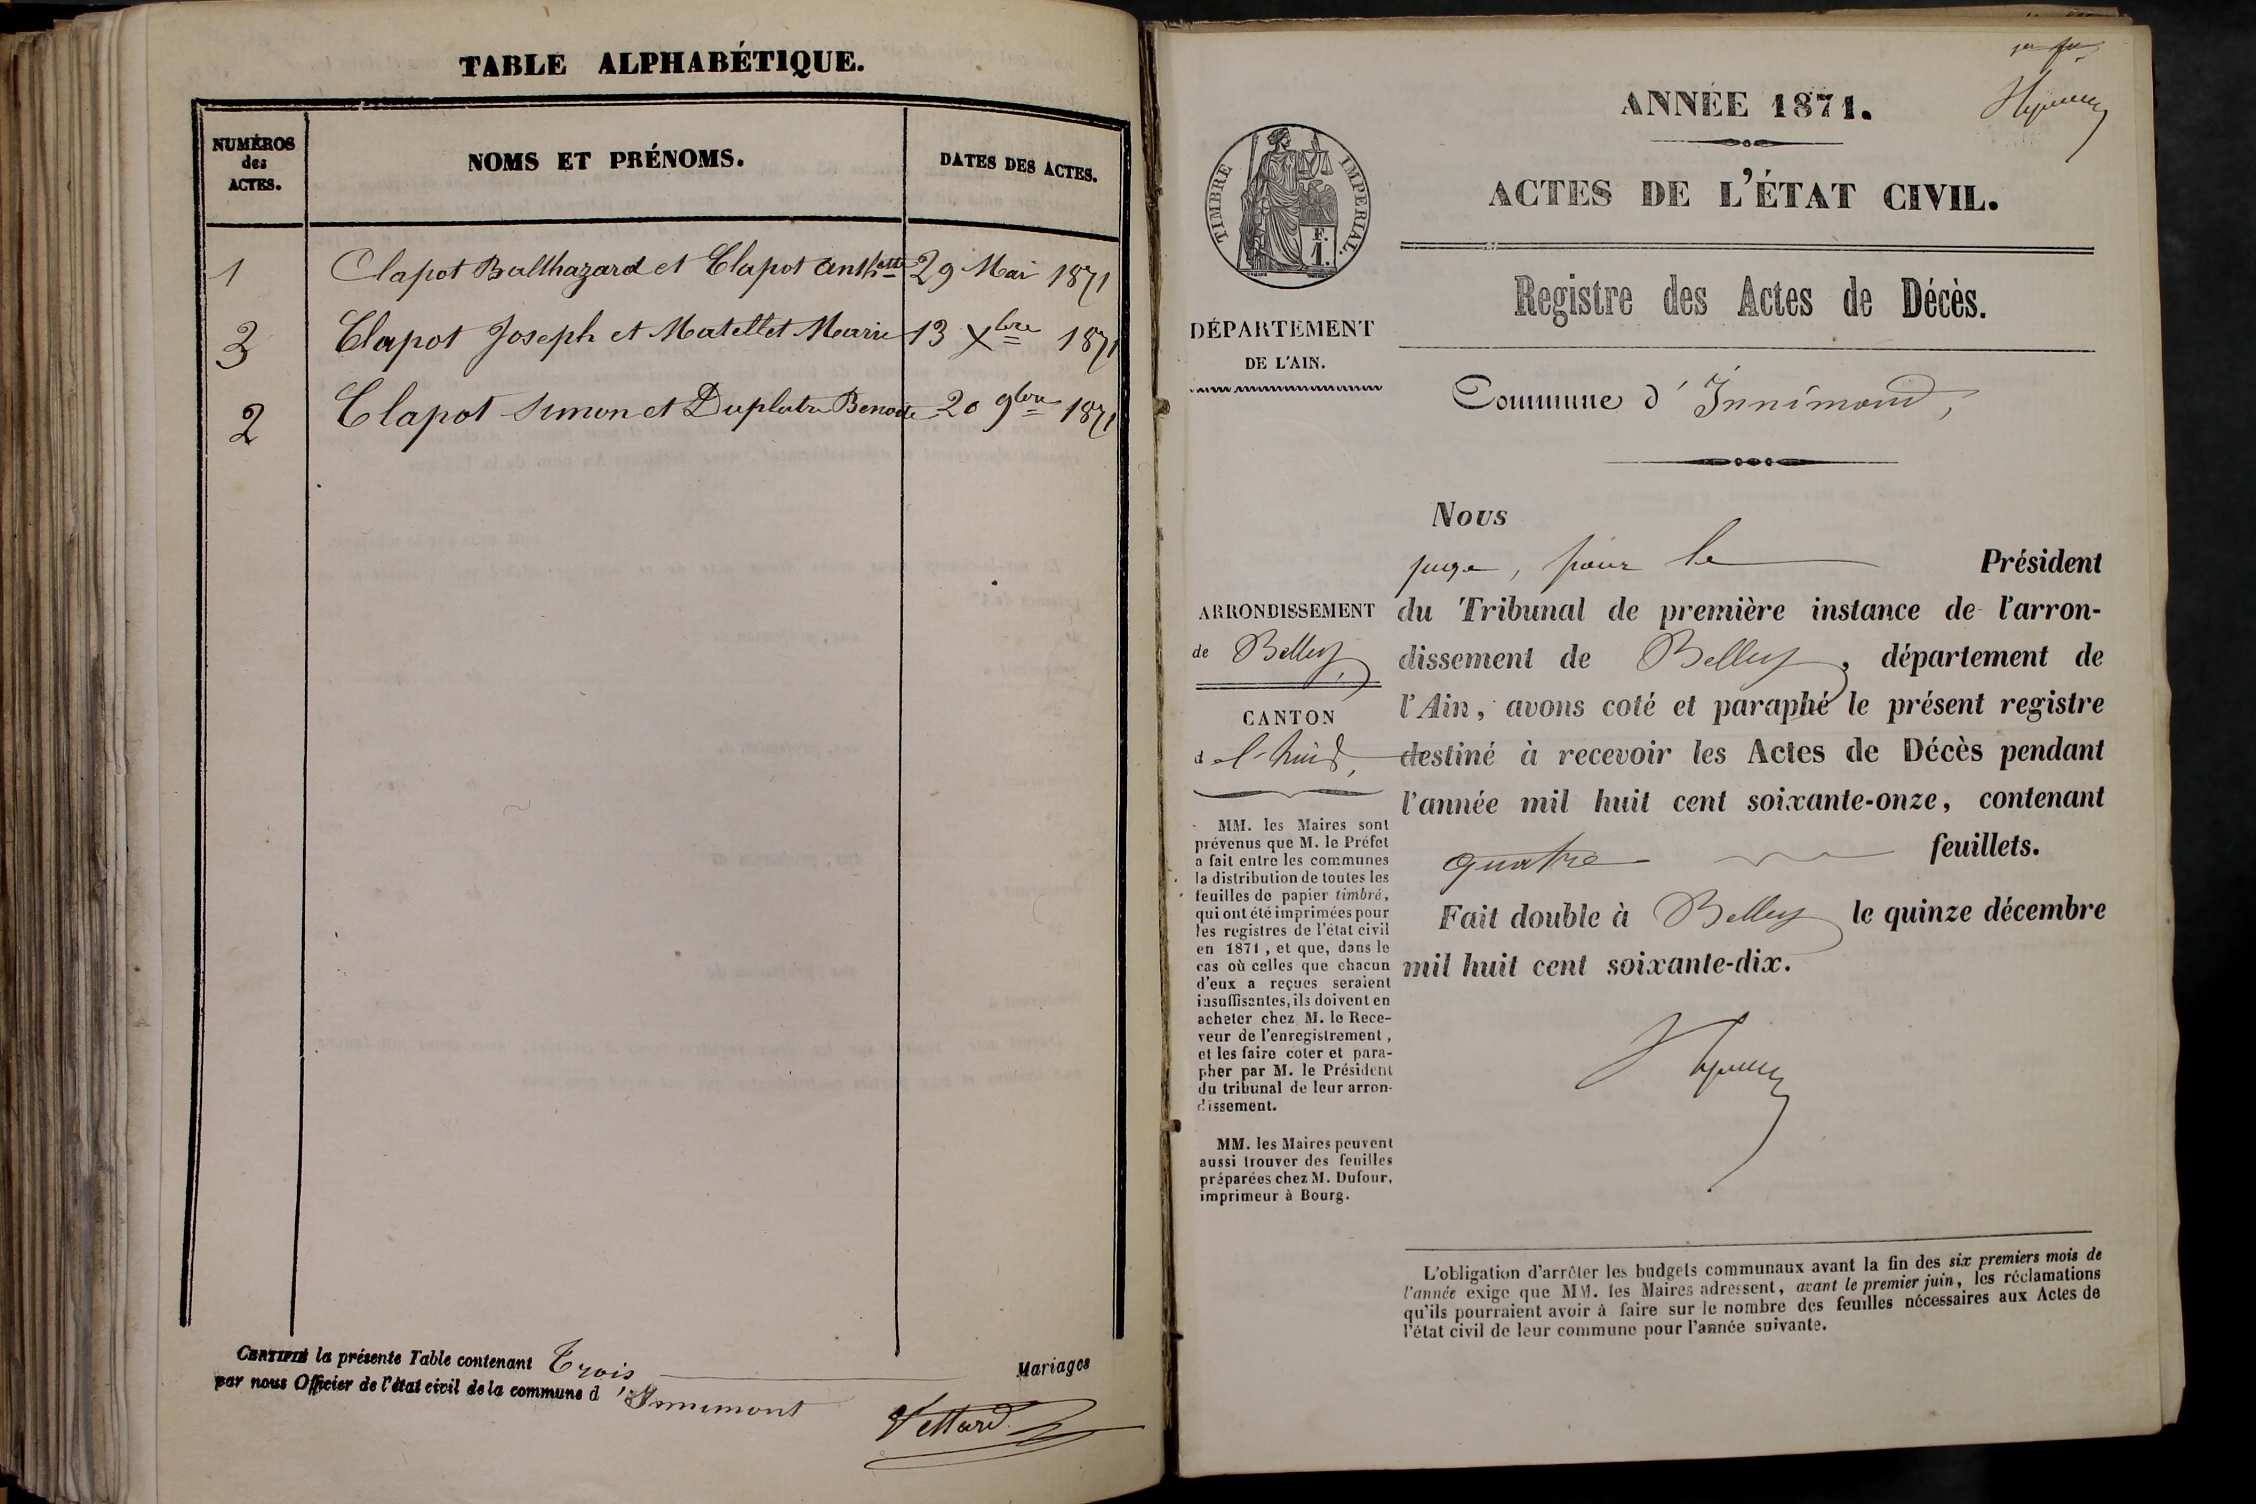 TABLE ALPHABÉTIQUE.
NUMÉROS
des
ACTES.
NOMS ET PRÉNOMS.
DATES DES ACTES.
1 Clapot Balthazard et Clapot Anthtte 29 Mai 1871
3 Clapot Joseph et Matellet Marie 13 Xbre 1871
2 Clapot Simon et Duplatre Benoite 20 9bre 1871
CERTIFIÉ la présente Table contenant Trois Mariages
par nous Officier de l'état civil de la commune d'Innimont
Vettard
ANNÉE 1871.
TIMBRE IMPERIAL.
F.
1.
ACTES DE L'ÉTAT CIVIL.
Registre des Actes de Décès.
DÉPARTEMENT
DE L'AIN.
Commune d'Innimond,
ARRONDISSEMENT
de Belley,
CANTON
d l'huis,
MM. les Maires sont
prévenus que M. le Préfet
a fait entre les communes
la distribution de toutes les
feuilles de papier timbré,
qui ont été imprimées pour
les registres de l'état civil
en 1871, et que, dans le
cas où celles que chacun
d'eux a reçues seraient
insuffisantes, ils doivent en
acheter chez M. le Rece-
veur de l'enregistrement,
et les faire coter et para-
pher par M. le Président
du tribunal de leur arron-
dissement.
MM. les Maires peuvent
aussi trouver des feuilles
préparées chez M. Dufour,
imprimeur à Bourg.
Nous
juge, pour le Président
du Tribunal de première instance de l'arron-
dissement de Belley, département de
l'Ain, avons coté et paraphé le présent registre
destiné à recevoir les Actes de Décès pendant
l'année mil huit cent soixante-onze, contenant
quatre feuillets.
Fait double à Belley le quinze décembre
mil huit cent soixante-dix.
L'obligation d'arrêter les budgets communaux avant la fin des six premiers mois de
l'année exige que MM. les Maires adressent, avant le premier juin, les réclamations
qu'ils pourraient avoir à faire sur le nombre des feuilles nécessaires aux Actes de
l'état civil de leur commune pour l'année suivante.